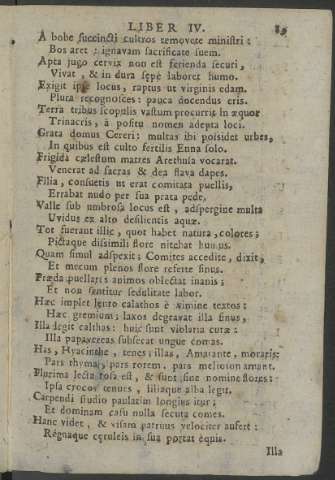 LIBER IV.
A bobe succincti cultros removete ministri:
Bos aret; ignavam sacrificate suem.
Apta jugo cervix non est ferienda securi,
Vivat, & in dura sępè laboret humo.
Exigit ipse locus, raptus ut virginis edam.
Plura recognosces: pauca docendus eris.
Terra tribus scopulis vastum procurrit in æquor
Trinacris, à positu nomen adepta loci.
Grata domus Cereri: multas ibi posidet urbes,
In quibus est culto fertilis Enna solo.
Frigida cælestum matres Arethusa vocarat.
Venerat ad sacras & dea flava dapes.
Filia, consuetis ut erat comitata puellis,
Errabat nudo per sua prata pede,
Valle sub umbrosa locus est, adspergine multa
Uvidus ex alto desilientis aquæ.
Tot fuerant illic, quot habet natura, colores;
Pictaque dissimili flore nitebat humus.
Quam simul adspexit; Comites accedite, dixit,
Et mecum plenos flore referte sinus.
Præda puellares animos oblectat inanis;
Et non sentitur sedulitate labor.
Hæc implet lento calathos è vimine textos:
Hæc gremium; laxos degravat illa sinus,
Illa legit calthas: huic sunt violaria curæ:
Illa papavereas subsecat ungue comas.
Has, Hyacinthe, tenes; illas, Amarante, moraris:
Pars thyma, pars rorem, pars meliloton amant.
Plurima lecta rosa est, & sunt sine nomine flores:
Ipsa crocos tenues, liliaque alba legit,
Carpendi studio paulatim longius itur;
Et dominam casu nulla secuta comes.
Hanc videt, & visam patruus velociter aufert:
Regnaque cęruleis in sua portat equis.
Illa